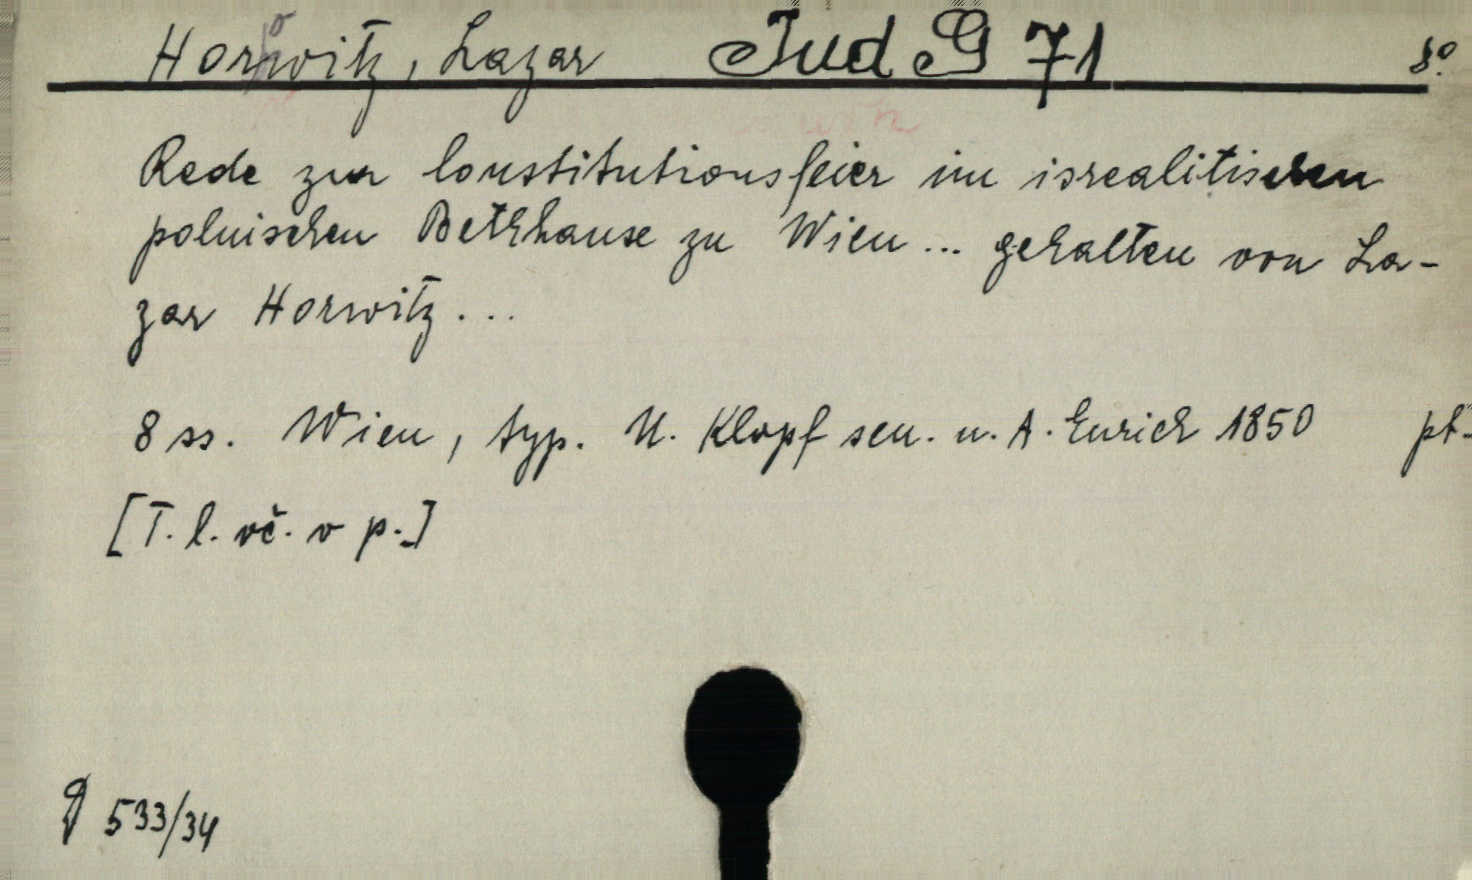 Horwitz, Lazar Jud G 71 8°.
Rede zur Constitutionsfeier im isrealitischen
polnischen Bethhause zu Wien ... gehalten von La-
zar Horwitz ...
8 ss. Wien, typ. U. Klopf sen. u. A. Eurich 1850 pt.
[T. l. vč. v p.]
533/34